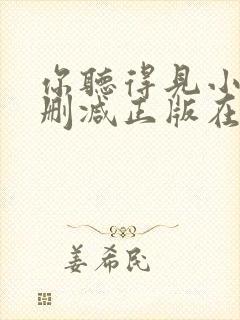 你聽得見小
删减正版在
姜希民